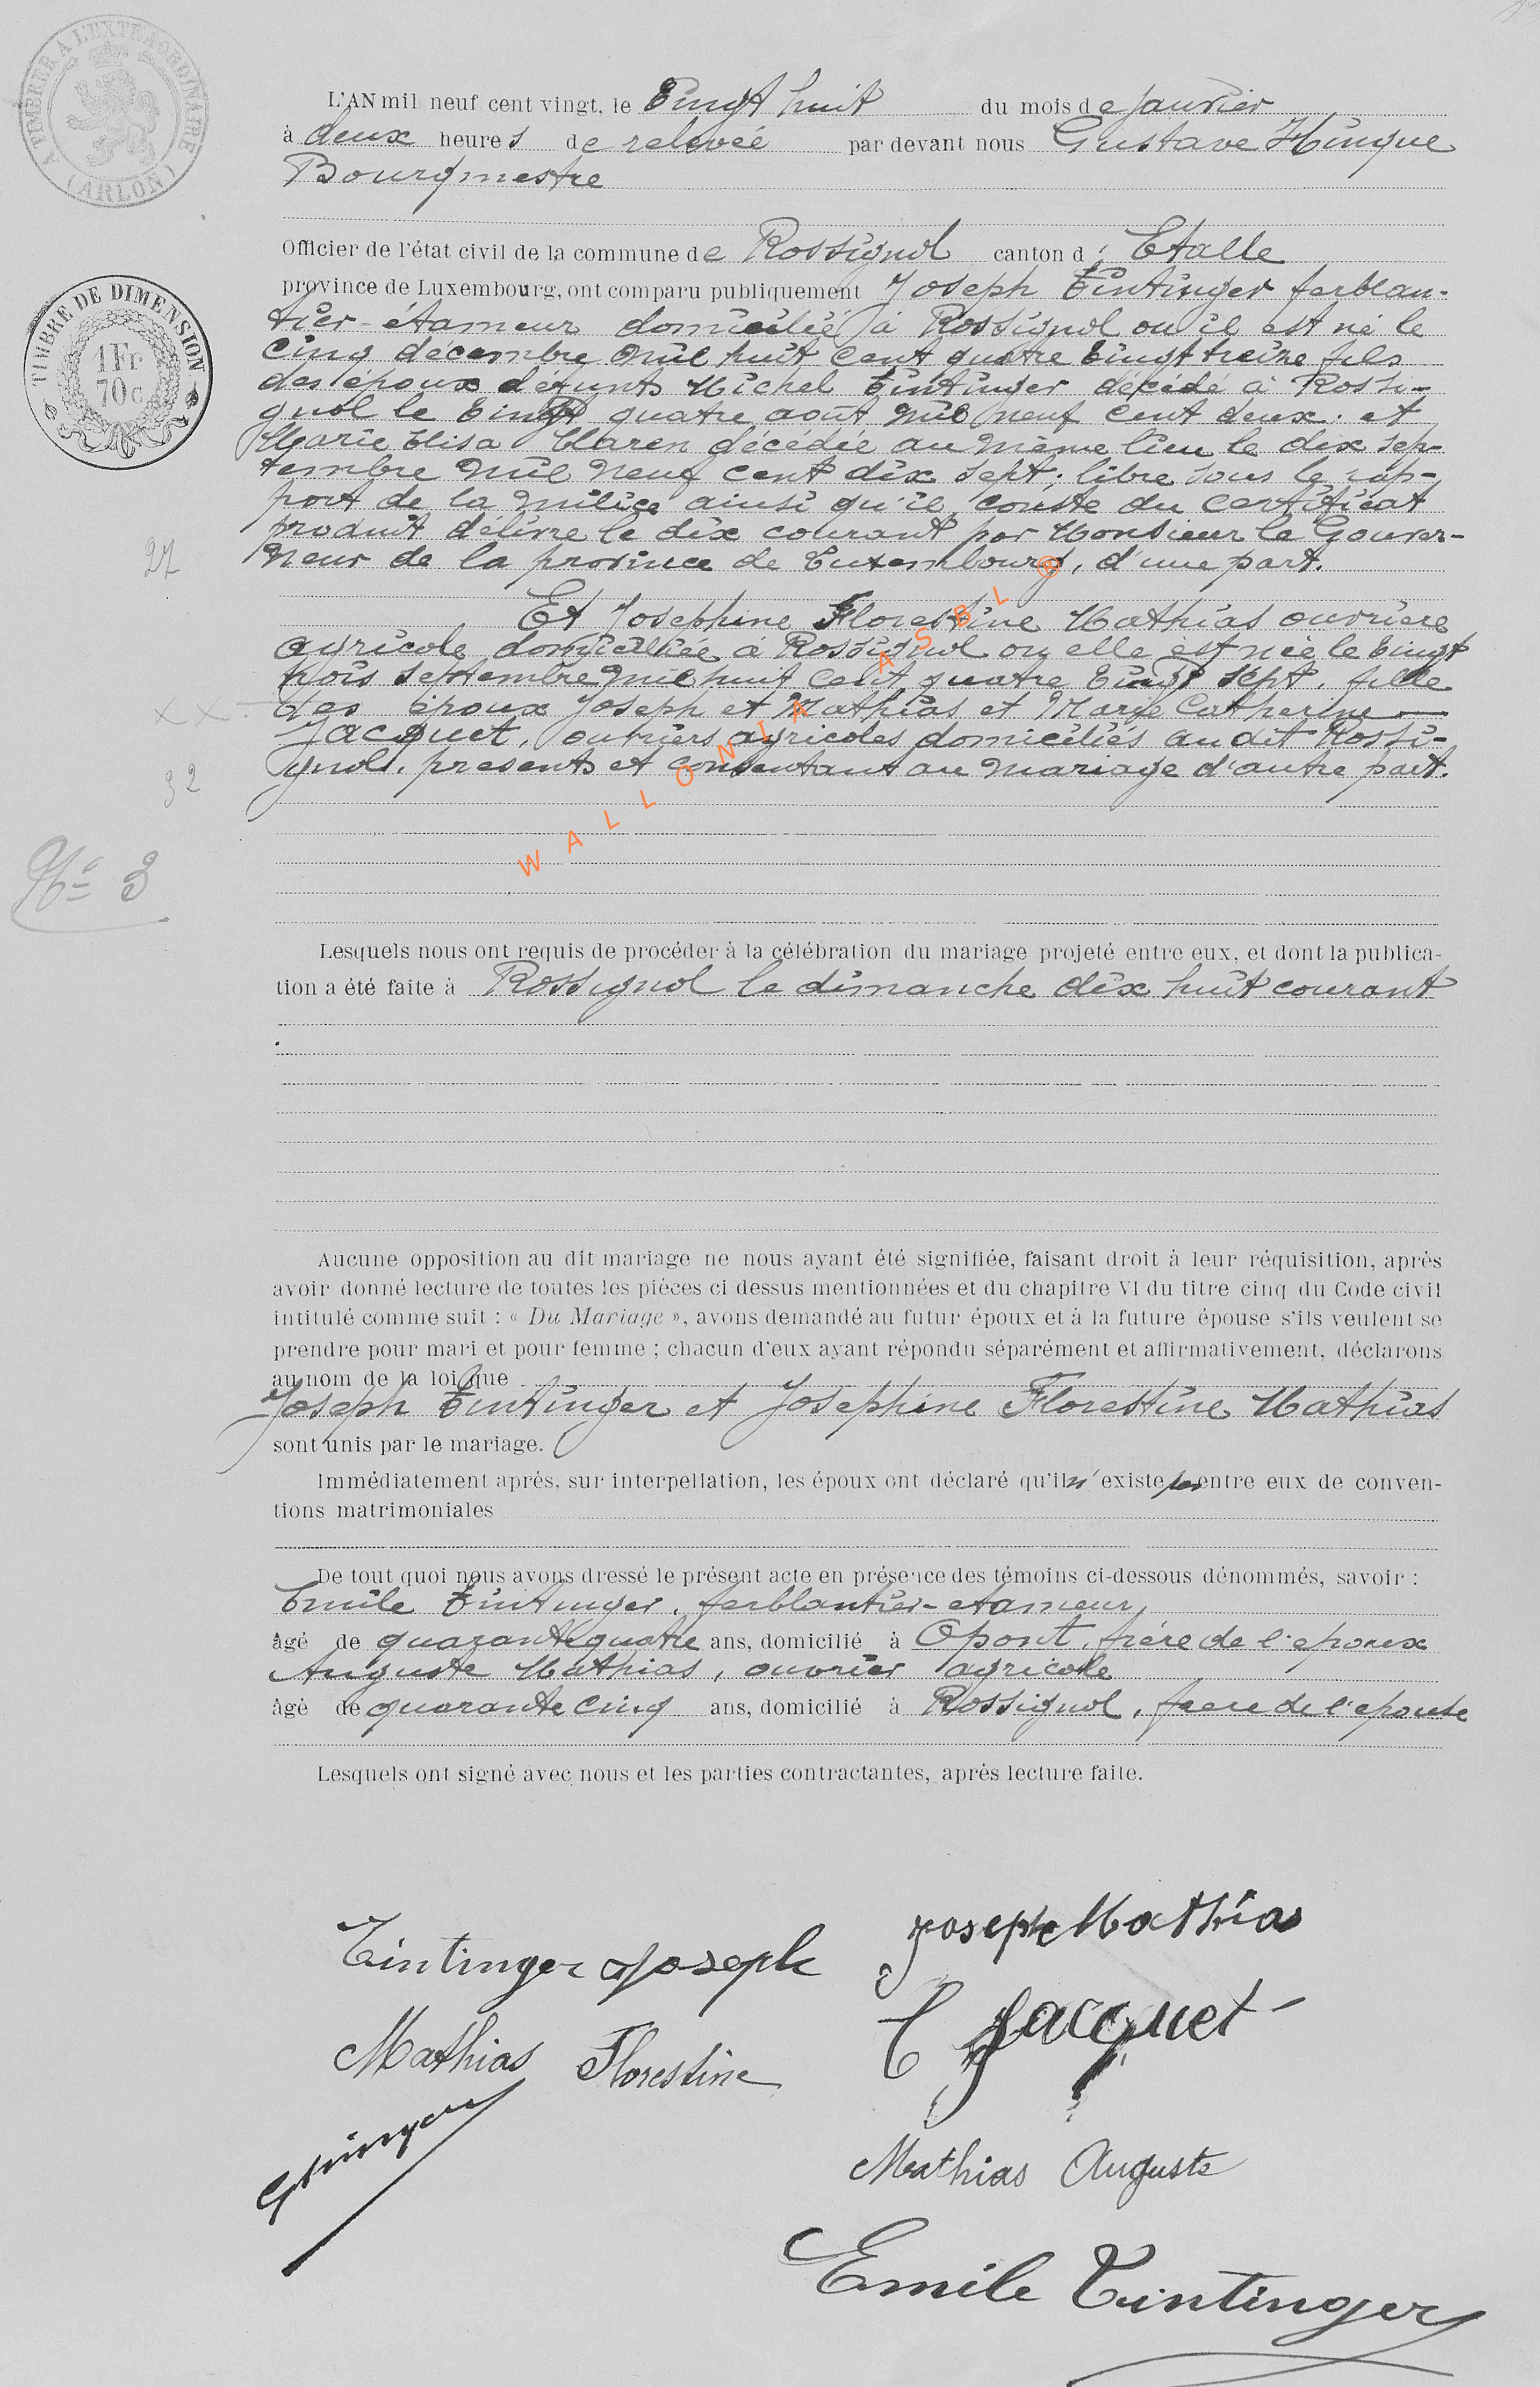 A TIMBRER A L'EXTRAORDINAIRE
(ARLON)
L'AN mil neuf cent vingt, le Vingt huit du mois de Janvier
à deux heures de relevée par devant nous Gustave Hinque
Bourgmestre
Officier de l'état civil de la commune de Rossignol canton d' Etalle
province de Luxembourg, ont comparu publiquement Joseph Tintinger ferblan-
tier-étameur domicilié à Rossignol où il est né le
cinq décembre mil huit cent quatre vingt treize fils
des époux défunts Michel Tintinger décédé à Rossi-
gnol le vingt quatre août mil neuf cent deux; et
Marie Elisa Claren décédée au même lieu le dix sep-
tembre mil neuf cent dix sept; libre sous le rap-
port de la milice ainsi qu'il conste du certificat
produit délivré le dix courant par Monsieur le Gouver-
neur de la province de Luxembourg, d'une part.
Et Josephine Florestine Mathias ouvrière
agricole domiciliée à Rossignol où elle est née le vingt
trois septembre mil huit cent quatre vingt sept, fille
des époux Joseph et Mathias et Marie Catherine
Jacquet, ouvriers agricoles domiciliés au dit Rossi-
gnol, présents et consentant au mariage d'autre part.
TIMBRE DE DIMENSION
1 Fr
70 c
27
XX
32
No 3
WALLONIA ASBL ®
Lesquels nous ont requis de procéder à la célébration du mariage projeté entre eux, et dont la publica-
tion a été faite à Rossignol le dimanche dix huit courant
Aucune opposition au dit mariage ne nous ayant été signifiée, faisant droit à leur réquisition, après
avoir donné lecture de toutes les pièces ci dessus mentionnées et du chapitre VI du titre cinq du Code civil
intitulé comme suit : « Du Mariage », avons demandé au futur époux et à la future épouse s'ils veulent se
prendre pour mari et pour femme ; chacun d'eux ayant répondu séparément et affirmativement, déclarons
au nom de la loi que
Joseph Tintinger et Josephine Florestine Mathias
sont unis par le mariage.
Immédiatement après, sur interpellation, les époux ont déclaré qu'il n'existe pas entre eux de conven-
tions matrimoniales
De tout quoi nous avons dressé le présent acte en présence des témoins ci-dessous dénommés, savoir :
Emile Tintinger, ferblantier-etameur,
âgé de quarante quatre ans, domicilié à Opont, frère de l'epoux
Auguste Mathias, ouvrier agricole
âgé de quarante cinq ans, domicilié à Rossignol, frere de l'epouse
Lesquels ont signé avec nous et les parties contractantes, après lecture faite.
Tintinger Joseph
Joseph Mathias
C Jacquet
Mathias Florestine
Mathias Auguste
Emile Tintinger